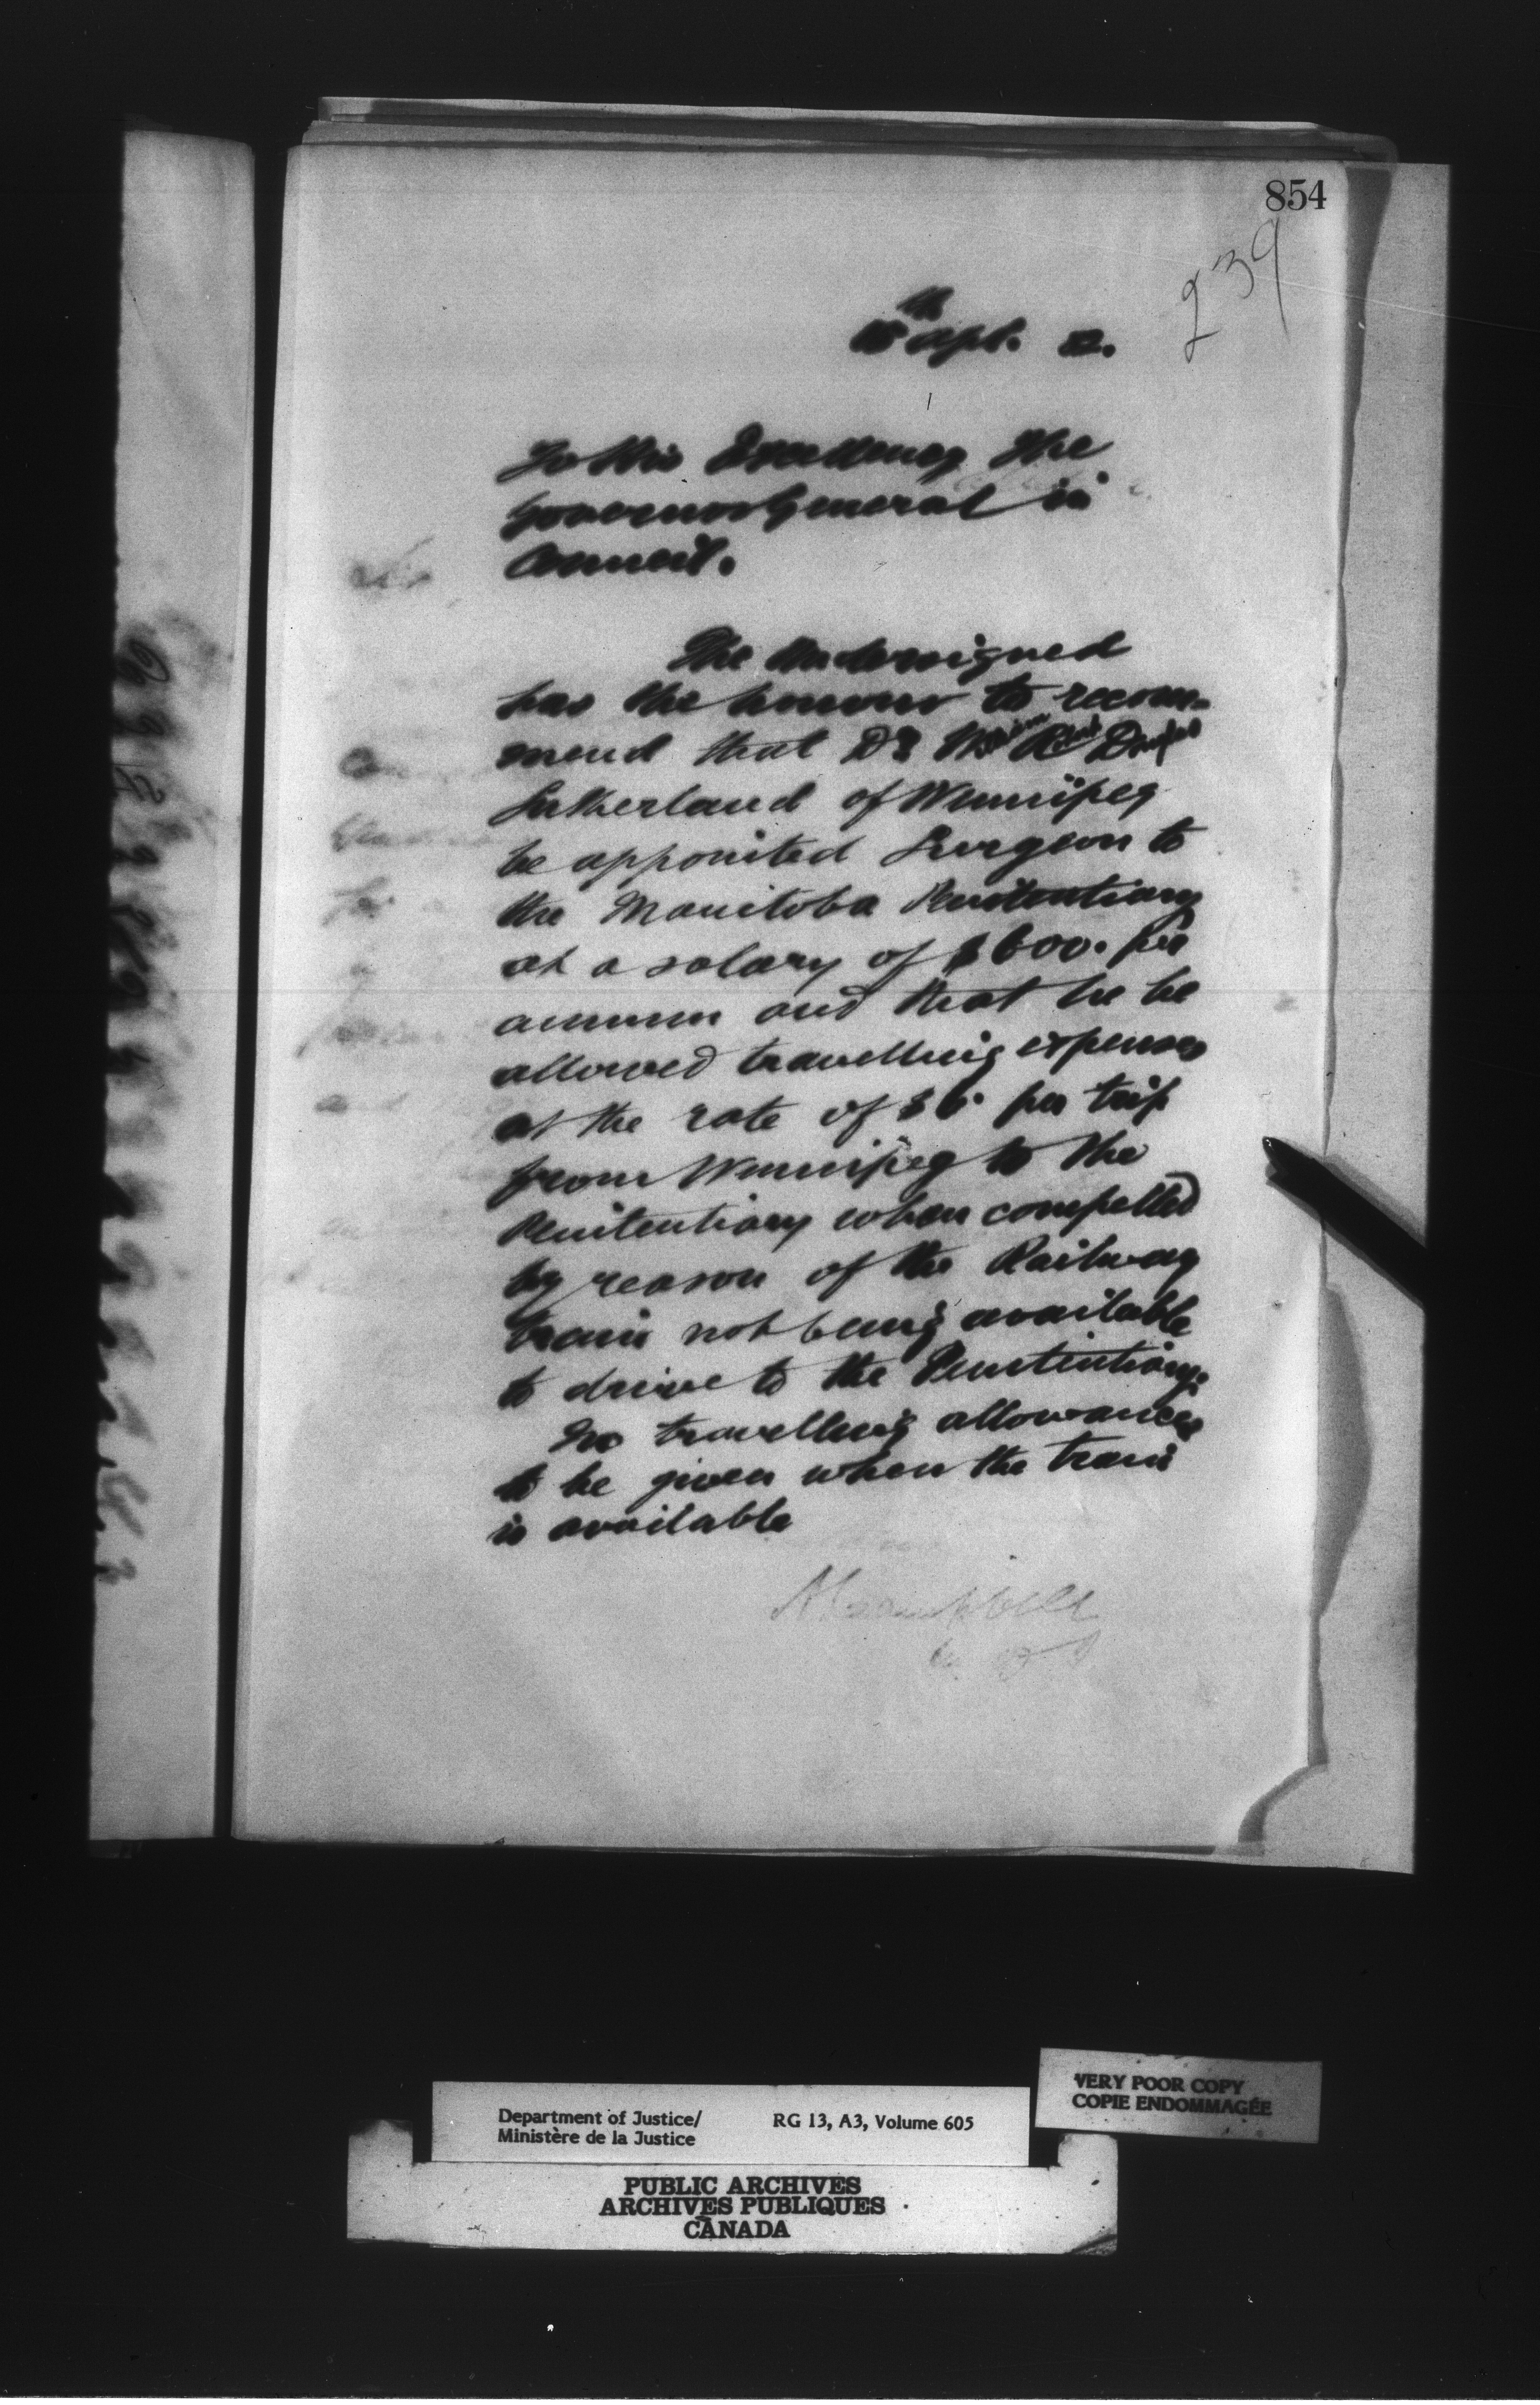 854
239
Apl. 82.
To His Excellency The
Governor General in
Council.
The Undersigned
has the honour to recom-
mend that Dr W R D
Sutherland of Winnipeg
be appointed Surgeon to
the Manitoba Penitentiary
at a salary of $600. per
annum and that he be
allowed travelling expenses
at the rate of $6. per trip
from Winnipeg to the
Penitentiary when compelled
by reason of the Railway
train not being available
to drive to the Penitentiary.
No travelling allowance
to be given when the train
is available
A Campbell
VERY POOR COPY
COPIE ENDOMMAGÉE
Department of Justice/ RG 13, A3, Volume 605
Ministère de la Justice
PUBLIC ARCHIVES
ARCHIVES PUBLIQUES
CANADA